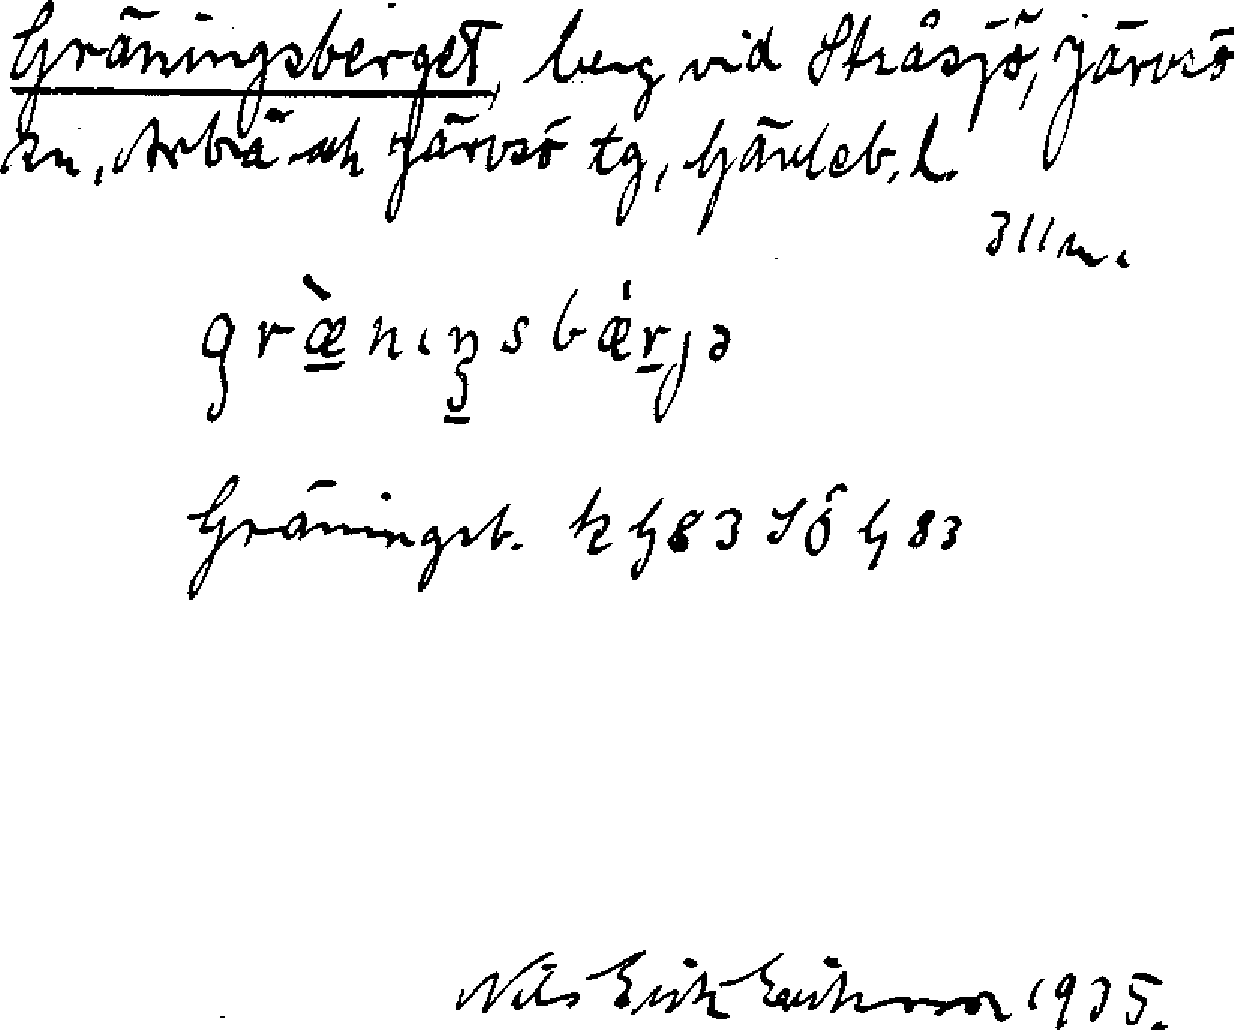 Gräningsberget, berg vid Stråsjö, Järvsö
sn, Arbrå och Järvsö tg, Gävleb. l.
311 m.
græ̀nıŋsbǽrjə
Gräningsb. k G 83 SÖ G 83
Nils Erik Eriksson 1935.